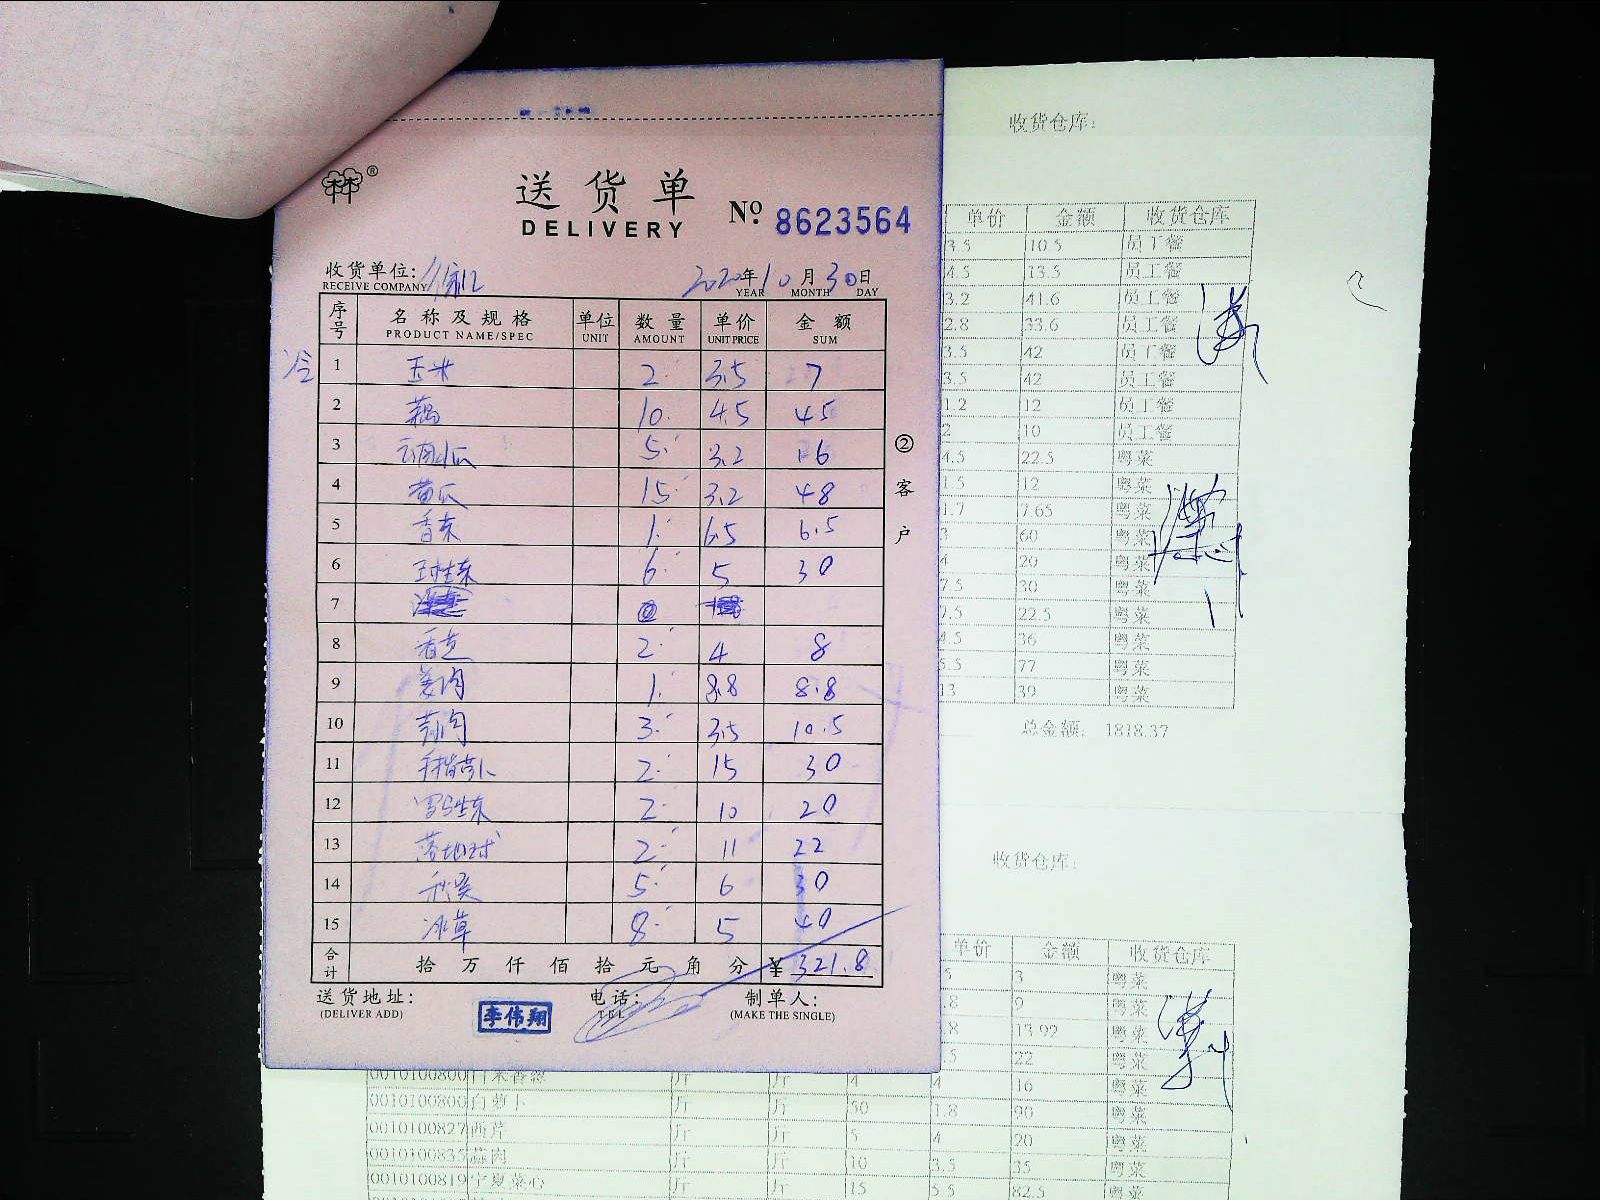 送货单
DELIVERY
No. 8623564
收货单位:
RECEIVE COMPANY
2020年10月30日
YEAR MONTH DAY
序号 名称及规格 单位 数量 单价 金额
PRODUCT NAME/SPEC UNIT AMOUNT UNIT PRICE SUM
冷
1 玉米 2 3.5 7
2 藕 10 4.5 45
3 5 3.2 16
4 黄瓜 15 3.2 48
5 香菜 1 6.5 6.5
6 6 5 30
7
8 香芒 2 4 8
9 姜肉 1 8.8 8.8
10 蒜肉 3 3.5 10.5
11 手指萝卜 2 15 30
12 罗马生菜 2 10 20
13 落地球 2 11 22
14 秋葵 5 6 30
15 冰草 8 5 40
合计 拾万仟佰拾元角分 ¥ 321.8
送货地址: 电话: 制单人:
(DELIVER ADD) TEL (MAKE THE SINGLE)
李伟翔
②客户
收货仓库:
单价 金额 收货仓库
3.5 10.5 员工餐
4.5 13.5 员工餐
3.2 41.6 员工餐
2.8 33.6 员工餐
3.5 42 员工餐
3.5 42 员工餐
1.2 12 员工餐
2 10 员工餐
4.5 22.5 粤菜
1.5 12 粤菜
1.7 7.65 粤菜
3 60 粤菜
4 20 粤菜
7.5 30 粤菜
7.5 22.5 粤菜
4.5 36 粤菜
5.5 77 粤菜
13 39 粤菜
总金额: 1818.37
收货仓库:
单价 金额 收货仓库
5 3 粤菜
.8 9 粤菜
.8 13.92 粤菜
5 22 粤菜
0010100800 斤 斤 4 4 16 粤菜
0010100800 白萝卜 斤 斤 50 1.8 90 粤菜
0010100827 西芹 斤 斤 5 4 20 粤菜
0010100835 蒜肉 斤 斤 10 3.5 35 粤菜
0010100819 宁夏菜心 斤 斤 15 5.5 82.5 粤菜